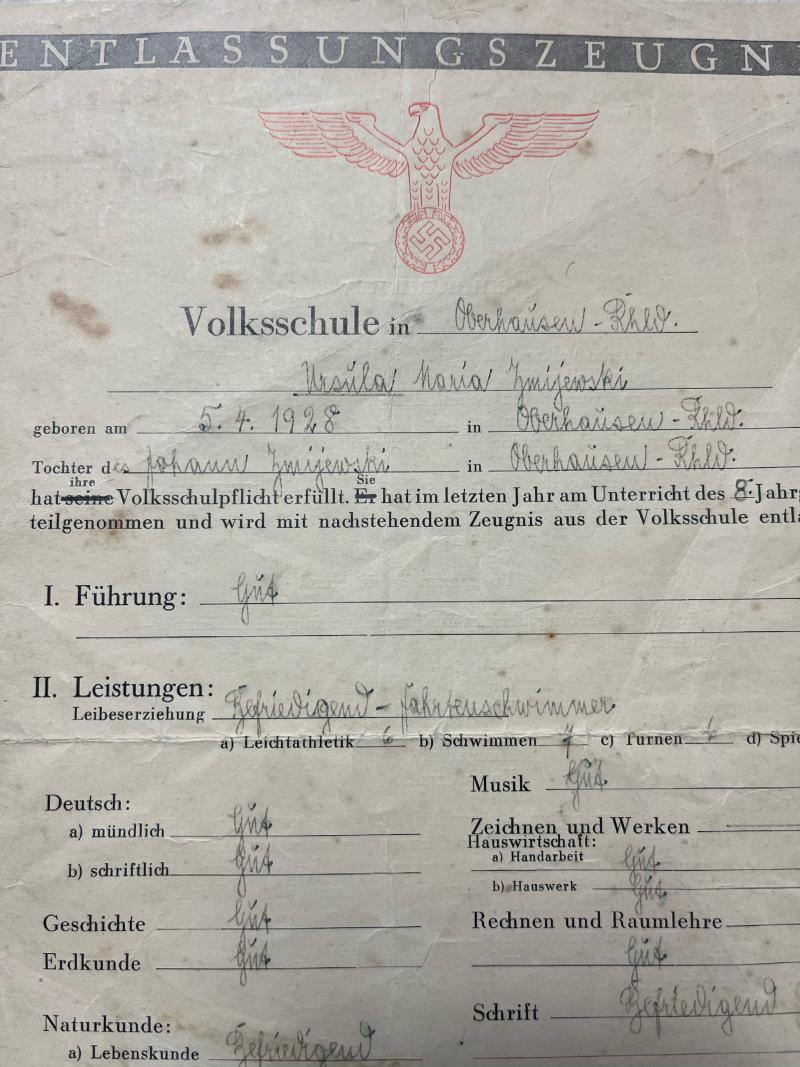 ENTLASSUNGSZEUGN
Volksschule in Oberhausen-Rhld.
Ursula Maria Zmijewski
geboren am 5. 4. 1928 in Oberhausen-Rhld.
Tochter des Johann Zmijewski in Oberhausen-Rhld.
ihre Sie
hat seine Volksschulpflicht erfüllt. Er hat im letzten Jahr am Unterricht des 8. Jahrg
teilgenommen und wird mit nachstehendem Zeugnis aus der Volksschule entla
I. Führung: Gut
II. Leistungen:
Leibeserziehung Befriedigend - Fahrtenschwimmer
a) Leichtathletik 6 b) Schwimmen 7 c) Turnen 6 d) Spie
Musik Gut
Deutsch:
a) mündlich Gut
Zeichnen und Werken
Hauswirtschaft:
a) Handarbeit Gut
b) schriftlich Gut
b) Hauswerk Gut
Geschichte Gut
Rechnen und Raumlehre
Erdkunde Gut
Gut
Schrift Befriedigend
Naturkunde:
a) Lebenskunde Befriedigend